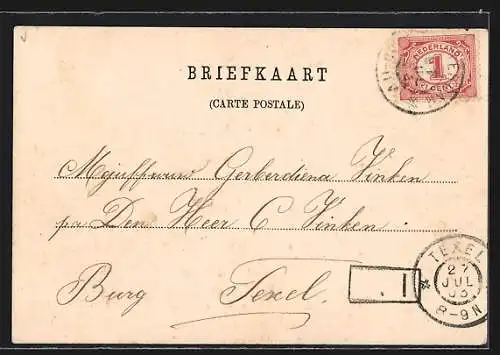 NEDERLAND
1
CENT
BRIEFKAART
(CARTE POSTALE)
Mejuffrouw Gerberdiena Vinken
pr. Den Heer C Vinken
Burg Texel.
I
TEXEL
27
JUL
8-9N